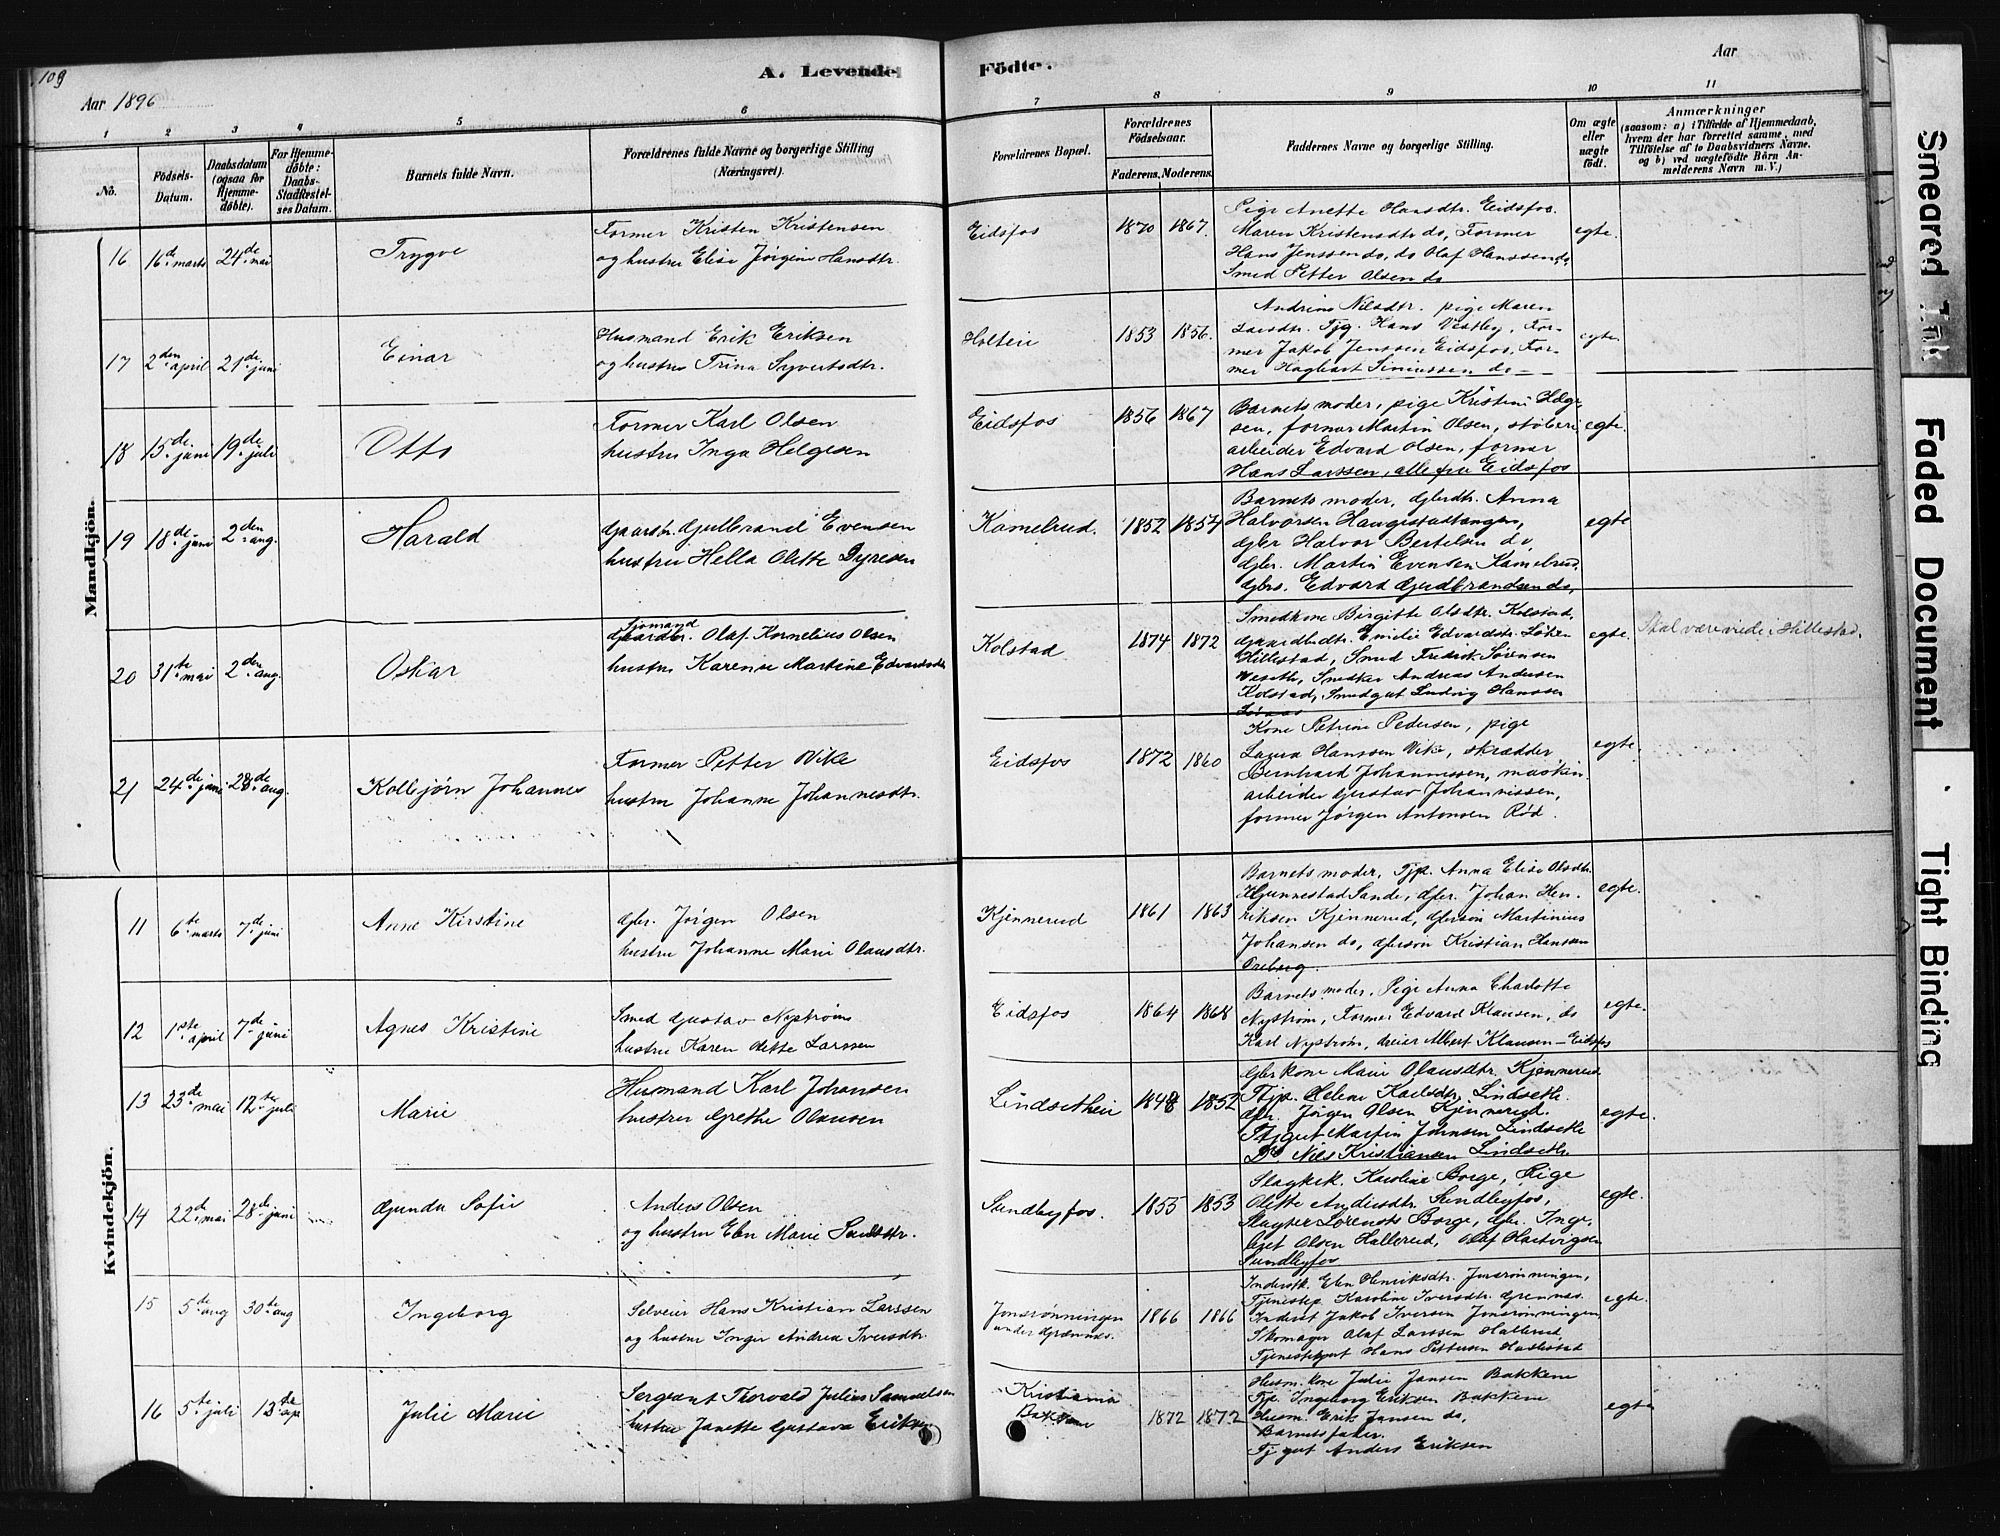 109
A. Levende Födte.
Aar 1896
Aar
1 2 3 4 5 6 7 8 9 10 11
No.
Födsels-Datum.
Daabsdatum (ogsaa for Hjemmedöbte).
For Hjemmedöbte: Daabs-Stadfæstelses Datum.
Barnets fulde Navn.
Forældrenes fulde Navne og borgerlige Stilling (Næringsvei).
Forældrenes Bopæl.
Forældrenes Födselsaar.
Faderens. Moderens.
Faddernes Navne og borgerlige Stilling.
Om ægte eller uægte födt.
Anmærkninger
(saasom: a) i Tilfælde af Hjemmedaab, hvem der har forrettet samme, med Tilföielse af to Daabsvidners Navne. og b) ved uægtefödte Börn Anmelderens Navn m. V.)
Mandkjön.
16 16de marts 24de mai Trygve
Former Kristen Kristensen
og hustru Elise Jørgine Hansdtr.
Eidsfos 1870 1867.
Pige Anette Hansdtr. Eidsfos.
Maren Kristensdtr do, Former
Hans Jenssen do, do Olaf Hanssen do,
Smed Petter Olsen do
egte.
17 2den april 21de juni Einar
Husmand Erik Eriksen
og hustru Trina Syvertsdtr.
Holtein 1853 1856.
Andrine Nilsdtr. pige Maren
Larsdtr. Tjg. Hans Vestby, For-
mer Jakob Jenssen Eidsfos, For-
mer Hagbart Simenssen do
egte.
18 15de juni 19de juli Otto
Former Karl Olsen
hustru Inga Helgesen
Eidsfos 1856 1867
Barnets moder, pige Kristine Helge-
sen, former Martin Olsen, støberi
arbeider Edvard Olsen, former
Hans Larssen, alle fra Eidsfos
egte.
19 18de juni 2den aug. Harald
Gaardbr. Gulbrand Evensen
hustru Hella Olette Dyresen
Kamelrud. 1852 1854
Barnets moder, Gbrdtr. Anna
Halvorsen Haugestadtangen,
Gbr Halvor Bertelsen do,
Gbr. Martin Evensen Kamelrud
Gbrs. Edvard Gudbrandsen do,
egte
20 31te mai 2den aug. Oskar
Sjømand
Gaardbr. Olaf Kornelius Olsen
hustru Karense Martine Edvardsdtr
Kolstad 1874 1872
Smedkone Birgitte Olsdtr. Kolstad,
Gaardbrdtr. Emilie Edvardsdtr.
Hillestad, Smed Fredrik Sørensen
Weseth, Snedker Andreas Andersen
Kolstad, Smedgut Ludvig Hanssen
egte.
Skal være viede i Hillestad.
21 24de juni 28de aug. Kolbjørn Johannes
Former Petter Vike
hustru Johanne Johannesdtr.
Eidsfos 1872 1860
Kone Petrine Pedersen, pige
Laura Hanssen Vike, skrædder
Bernhard Johannessen, maskin
arbeider Gustav Johannissen,
former Jørgen Antonsen Rød.
egte.
Kvindekjön.
11 6te marts 7de juni Anne Kirstine
Gbr. Jørgen Olsen
hustru Johanne Marie Olausdtr.
Kjennerud 1861 1863
Barnets moder, Tjp. Anna Elise Olsdtr.
Gunnestad Sande, Gbr. Johan Hen-
riksen Kjennerud, Gbrsøn Martinius
Johansen do, Gbrsøn Kristian Hanssen
Oreberg.
egte.
12 1ste april 7de juni Agnes Kristine
Smed Gustav Nystrøm
hustru Karen Olette Larssen
Eidsfos 1864 1868
Barnets moder, Pige Anna Charlotte
Nystrøm, Former Edvard Klausen, do
Karl Nystrøm, dreier Albert Klausen - Eidsfos
egte.
13 23de mai 12te juli Marie
Husmand Karl Johansen
hustru Grethe Olausen
Lindsetheie 1848 1852
Gbr kone Marie Olausdtr. Kjennerud
Tjp. Helene Karlsdtr. Lindseth.
Gbr. Jørgen Olsen Kjennerud.
Tjgut Martin Johnsen Lindseth
Do Nils Kristiansen Lindseth.
egte.
14 22de mai 28de juni Gunda Sofie
Anders Olsen
og hustru Elen Marie
Sundbyfos. 1855 1853
Slagtk. Karoline Borge, Pige
Olette Andersdtr. Sundbyfos,
Slagter Lorents Borge, Gbr. Inge-
bret Olsen Hallerud, Olaf Hartvigsen
Sundbyfos
egte.
15 5te aug 30te aug Ingeborg
Selveier Hans Kristian Larssen
og hustru Inger Andrea Iversdtr.
Jonsrønningen
under Grennes. 1866 1866
Inderstk. Elen Henriksdtr. Jonsrønningen,
Tjenestep. Karoline Iversdtr. Grennes.
Inderst Jakob Iversen Jonsrønningen
Skomager Olaf Larssen Hallerud,
Tjenestegut Hans Pettersen Haslestad
egte.
16 5te juli 13de sep Julie Marie
Sergeant Thorvald Julius Samuelsen
hustru Janette Gustava Eriksen
Kristiania
Bakkene 1872 1872
Husm. kone Julie Jansen Bakkene
Tjp Ingeborg Eriksen Bakkene
Husm. Erik Jansen do,
Barnets fader.
Tj gut Anders Eriksen
egte
Smeared Ink
Faded Document
Tight Binding